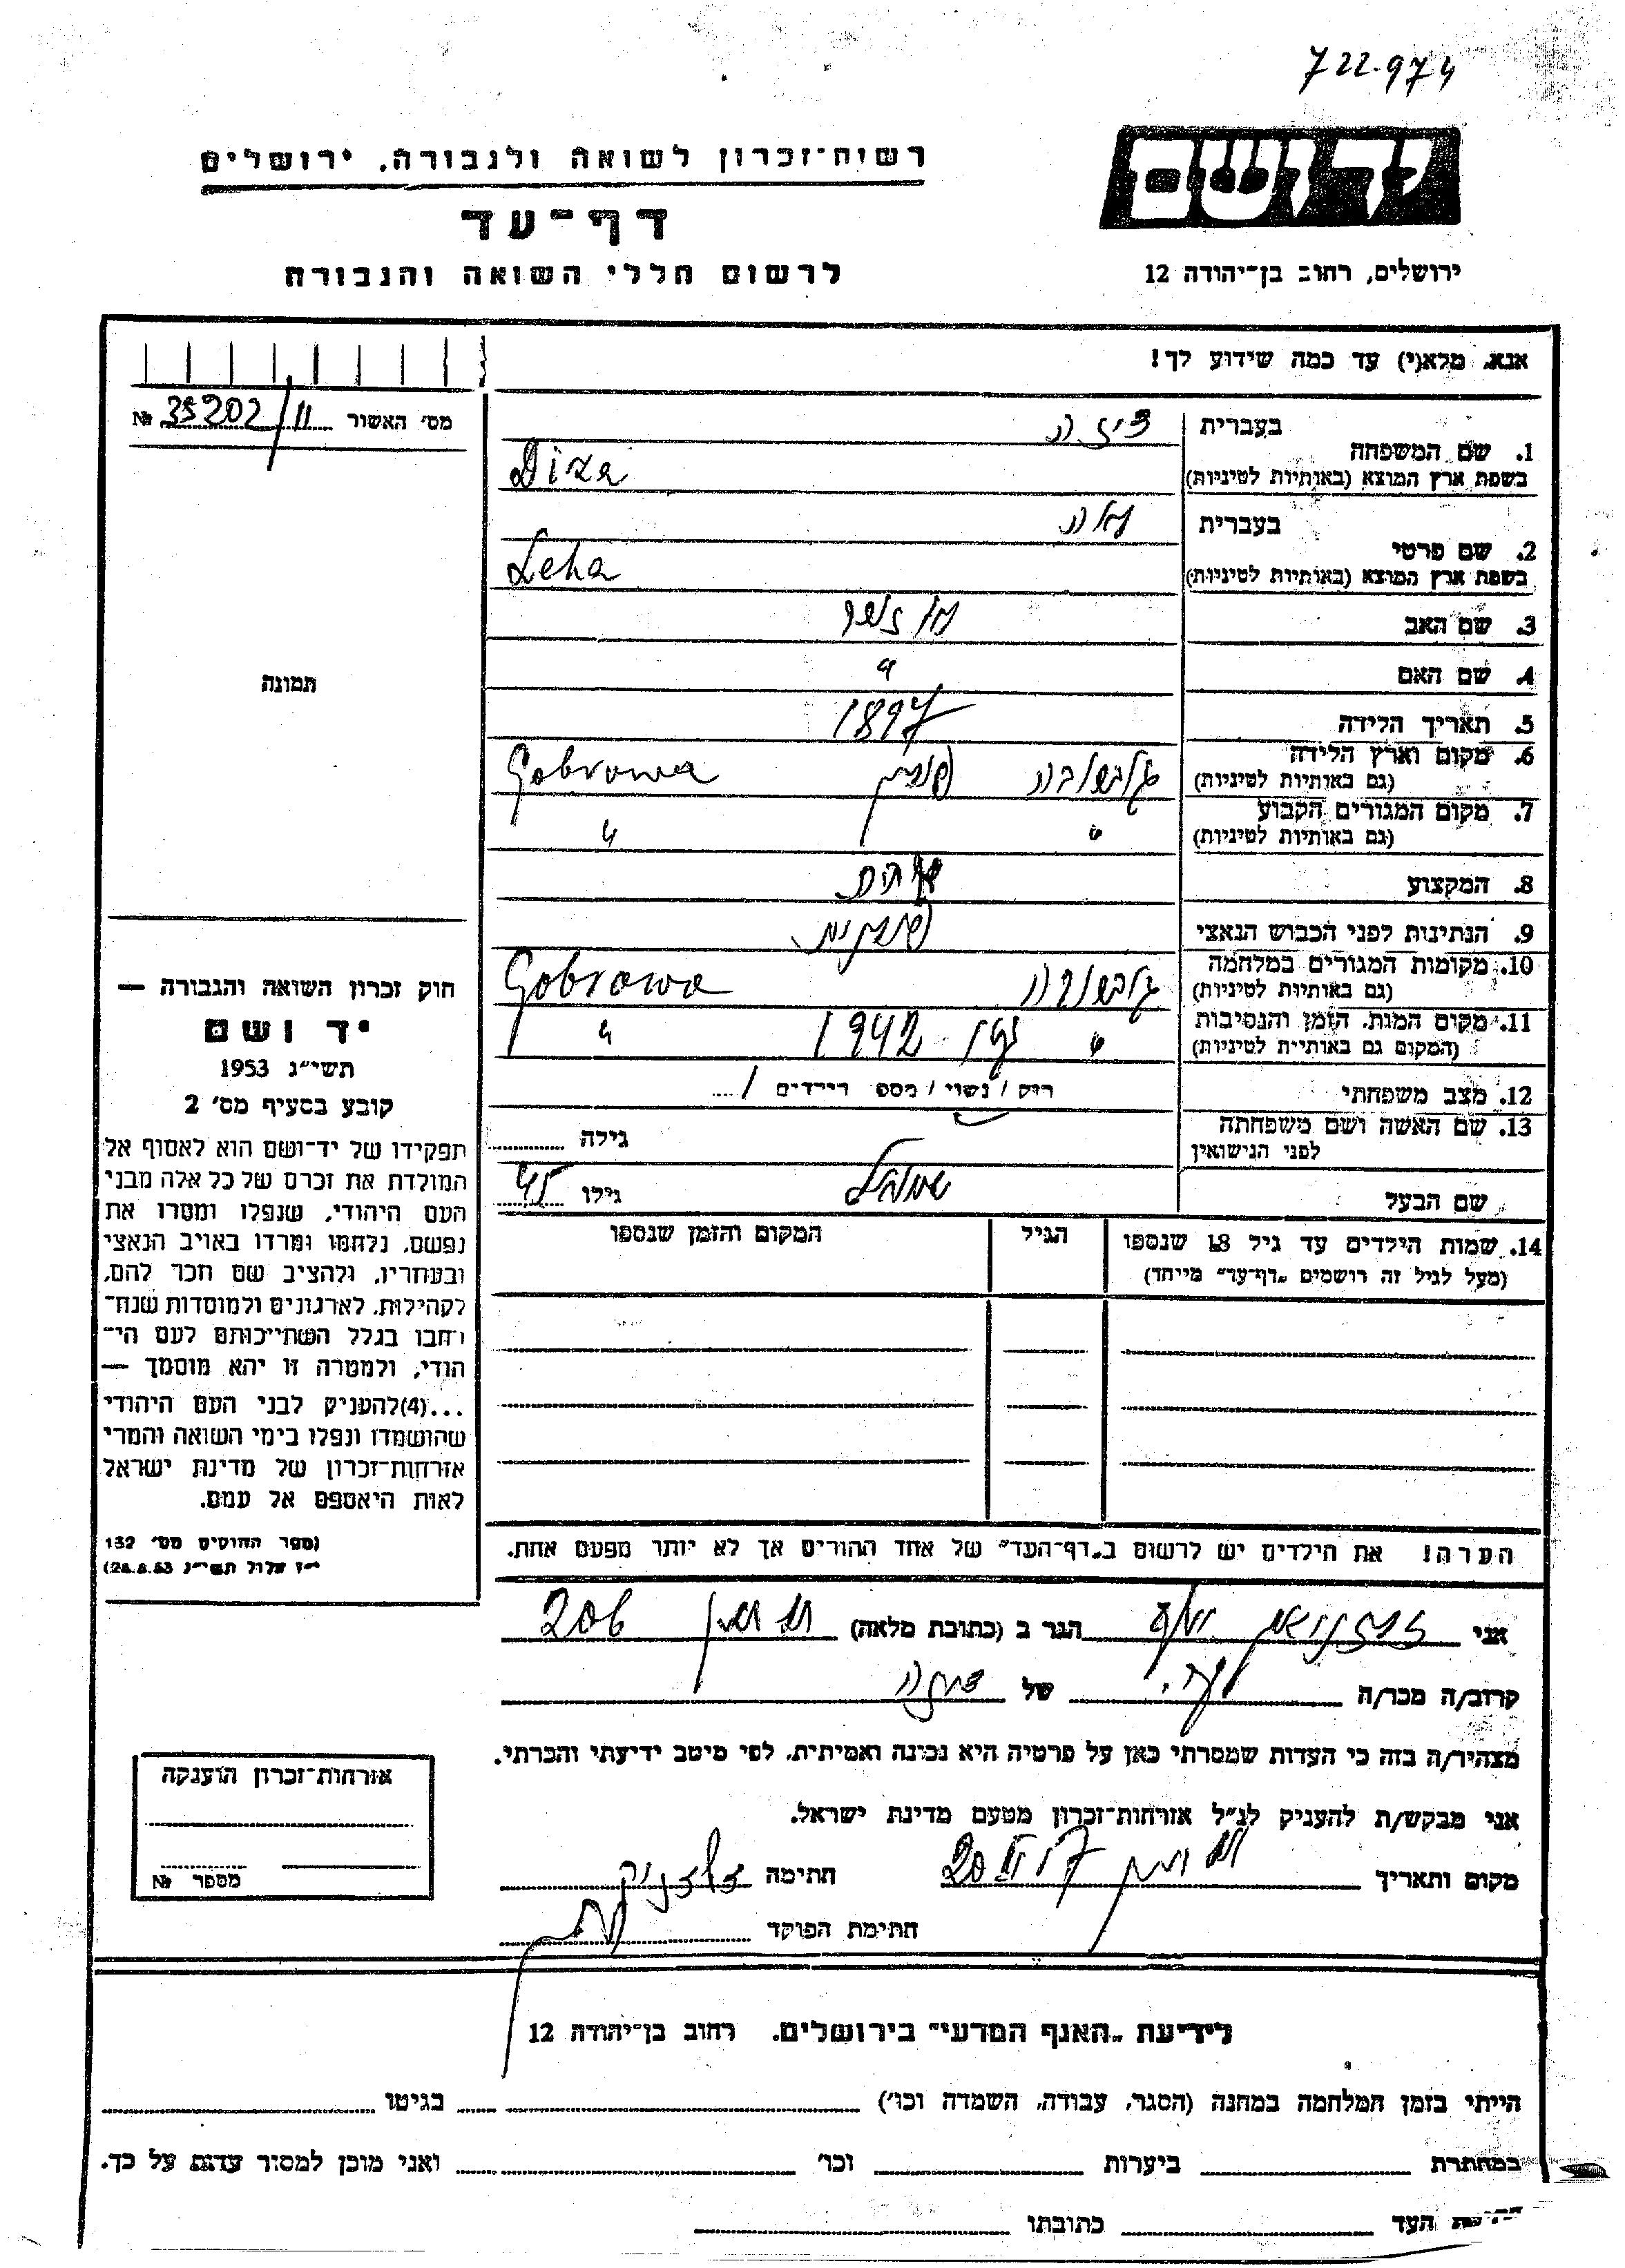 722.974
יד ושם
רשות־זכרון לשואה ולגבורה, ירושלים
דף־עד
לרשום חללי השואה והגבורה
ירושלים, רחוב בן־יהודה 12
אנא, מלא(י) עד כמה שידוע לך!
מס׳ האשור 35202/11 №
1. שם המשפחה
בעברית דיזה
בשפת ארץ המוצא (באותיות לטיניות) Diza
2. שם פרטי
בעברית לאה
בשפת ארץ המוצא (באותיות לטיניות) Leha
3. שם האב
4. שם האם "
5. תאריך הלידה 1897
6. מקום וארץ הלידה
(גם באותיות לטיניות) פולין Gobrowa
7. מקום המגורים הקבוע
(גם באותיות לטיניות) " "
8. המקצוע
9. הנתינות לפני הכבוש הנאצי פולנית
10. מקומות המגורים במלחמה
(גם באותיות לטיניות) Gobrowa
11. מקום המות, הזמן והנסיבות
(המקום גם באותיות לטיניות) " 1942 "
12. מצב משפחתי רוק / נשוי / מספר הילדים /....
13. שם האשה ושם משפחתה
לפני הנישואין גילה
שם הבעל שמואל גילו 45
14. שמות הילדים עד גיל 18 שנספו
(מעל לגיל זה רושמים „דף־עד” מייחד)
הגיל
המקום והזמן שנספו
הערה! את הילדים יש לרשום ב„דף־העד” של אחד ההורים אך לא יותר מפעם אחת.
תמונה
חוק זכרון השואה והגבורה —
יד ושם
תשי״ג 1953
קובע בסעיף מס׳ 2
תפקידו של יד־ושם הוא לאסוף אל
המולדת את זכרם של כל אלה מבני
העם היהודי, שנפלו ומסרו את
נפשם, נלחמו ומרדו באויב הנאצי
ובעוזריו, ולהציב שם וזכר להם,
לקהילות, לארגונים ולמוסדות שנח־
רבו בגלל השתייכותם לעם הי־
הודי, ולמטרה זו יהא מוסמך —
...(4)להעניק לבני העם היהודי
שהושמדו ונפלו בימי השואה והמרי
אזרחות־זכרון של מדינת ישראל
לאות היאספם אל עמם.
(ספר החוקים מס׳ 132
י״ז אלול תשי״ג 28.8.53)
אני הגר ב (כתובת מלאה) 206
קרוב/ה מכר/ה של
מצהיר/ה בזה כי העדות שמסרתי כאן על פרטיה היא נכונה ואמיתית, לפי מיטב ידיעתי והכרתי.
אני מבקש/ת להעניק לנ״ל אזרחות־זכרון מטעם מדינת ישראל.
מקום ותאריך חתימה
חתימת הפוקד
אזרחות־זכרון הוענקה
מספר №
לידיעת „האגף המדעי” בירושלים, רחוב בן־יהודה 12
הייתי בזמן המלחמה במחנה (הסגר, עבודה, השמדה וכו׳) בגיטו
במחתרת ביערות וכו׳ ואני מוכן למסור עדות על כך.
העד כתובתו